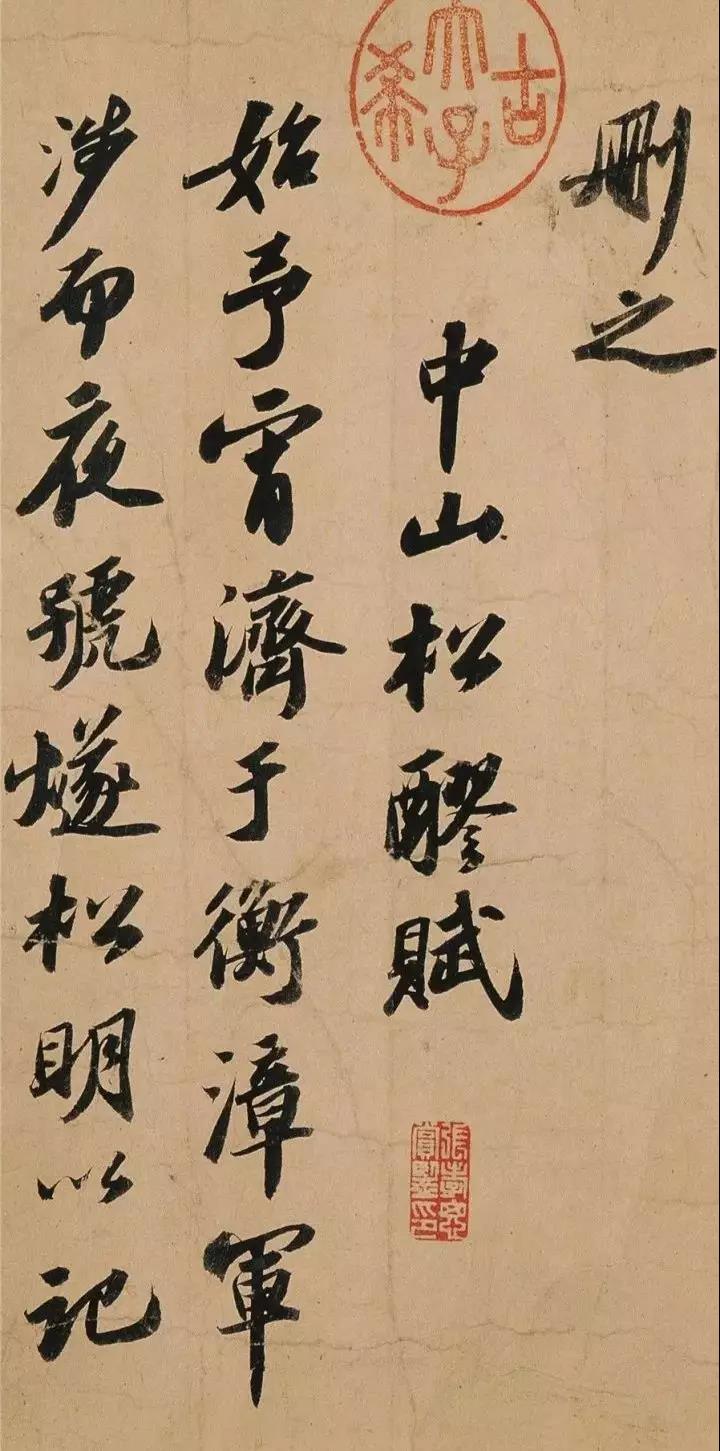 刪之
中山松醪賦
始予宵濟于衡漳軍
涉而夜號燧松明以記
古希天子